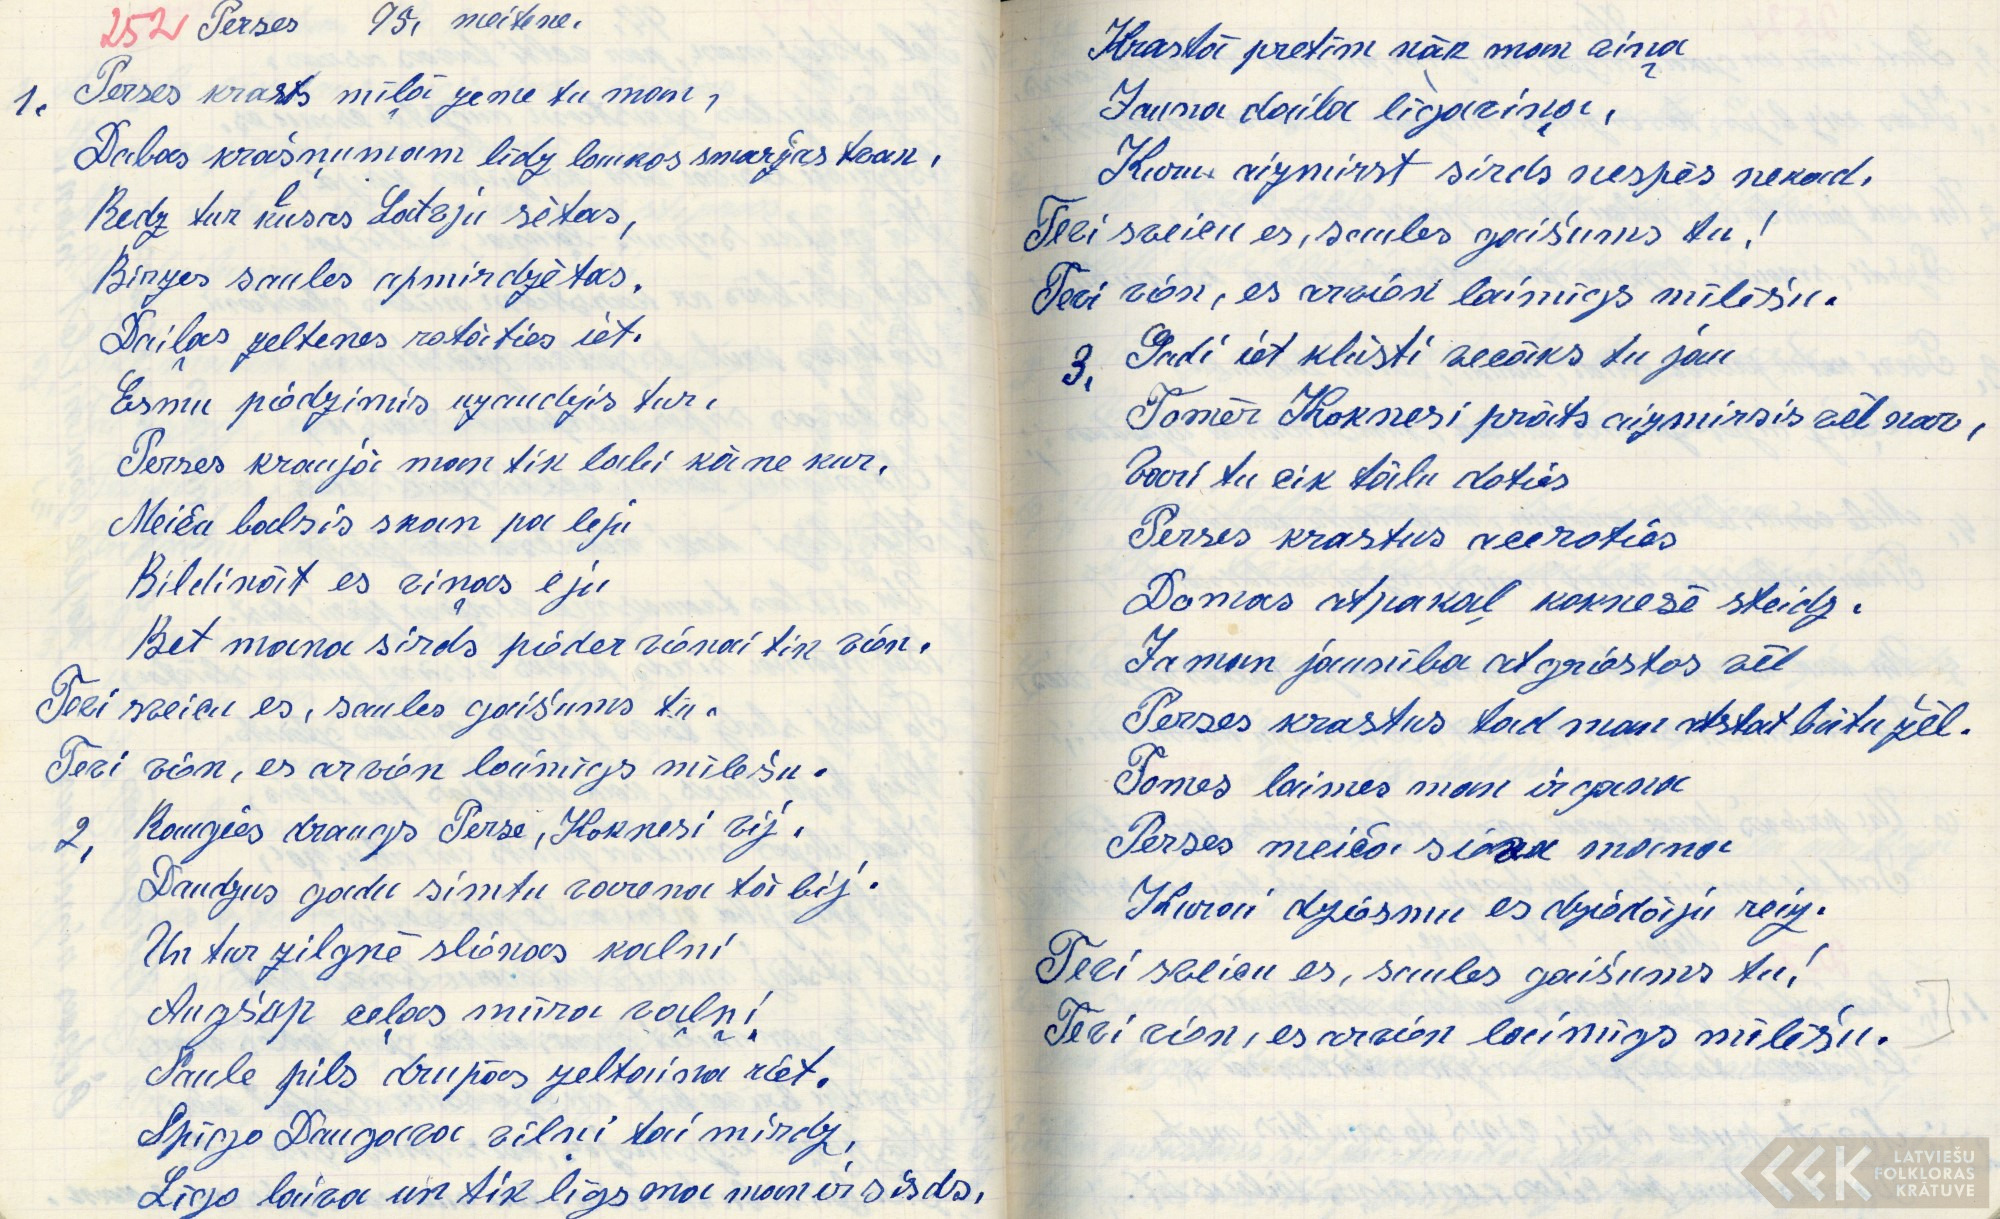 252 Perses 95, meitene.
1. Perses krasts mīļā zeme tu man,
Dabas krāšņumam līdz laukos smaržas tvan,
Redz tur kusās Latvju sētas,
Birzes saules apmirdzētas.
Daiļas zeltenes rotāties iet.
Esmu piedzimis uzaudzis tur,
Perses kraujā man tik labi kā ne kur,
Meiču balsis skan pa leju
Bildināt es viņas eju
Bet mana sirds pieder vienai tik vien.
Tevi sveicu es, saules gaišums tu.
Tevi vien, es arvien laimīgs mīlēšu.
2, Raugies draugs Persē, Koknesi vij,
Daudzus gadu simtu varena tā bij.
Un tur zilgnē slienas kalni
Augšap ceļas mūra vaļņi,
Saule pils drupās zeltaina riet.
Spīgo Daugava viļņi tai mirdz,
Līgo laiva un tik līgsma man ir sirds,
Krastā pretīm nāk man viņa
Jauna daiļa līgaviņa,
Kuru aizmirst sirds nespēs nekad,
Tevi sveicu es, saules gaišums tu,!
Tevi vien, es arvien laimīgs mīlēšu.
3, Gadi iet klūsti vecāks tu jau
Tomēr Koknesi prāts aizmirsis vēl nav,
Vari tu cik tālu doties
Perses krastus aceroties
Domas atpakaļ koknesē steidz.
Ja man jaunība atgriestos vēl
Perses krastus tad man atstat būtu žēl.
Pomes laimes man ir gana
Perses meiča sieva mana
Kurai dziesmu es dziedāju reiz.
Tevi sveicu es, saules gaišums tu!
Tevi vien, es arvien laimīgs mīlēšu.
LATVIEŠU
FOLKLORAS
KRĀTUVE